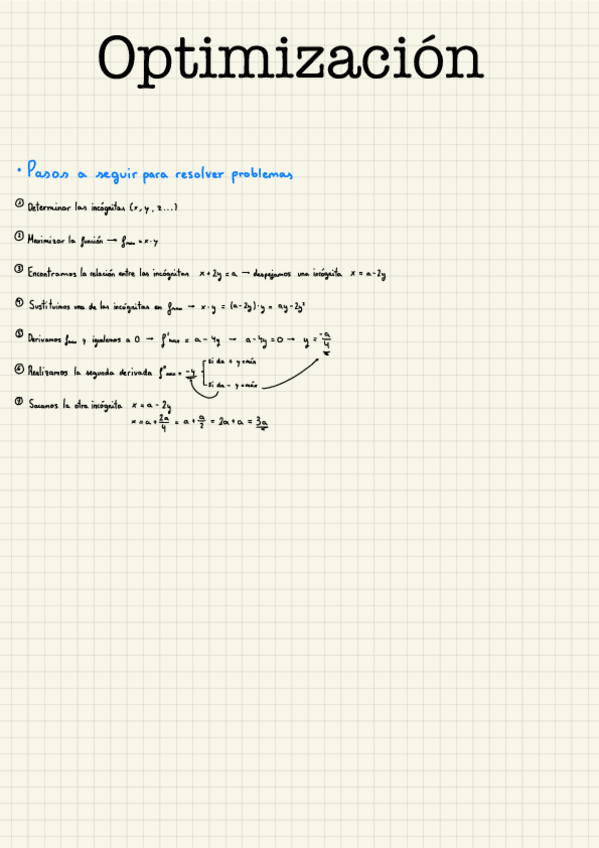 Optimización
• Pasos a seguir para resolver problemas
① Determinar las incógnitas (x, y, z...)
② Maximizar la función → fmax = x·y
③ Encontramos la relación entre las incógnitas x+2y = a → despejamos una incógnita x = a-2y
④ Sustituimos una de las incógnitas en fmax → x·y = (a-2y)·y = ay-2y²
⑤ Derivamos fmax y igualamos a 0 → f'max = a-4y → a-4y=0 → y = -a/4
⑥ Realizamos la segunda derivada f''max = -4
Si da + y=mín
Si da - y=máx
⑦ Sacamos la otra incógnita x = a-2y
x = a + 2a/4 = a + a/2 = 2a+a = 3a